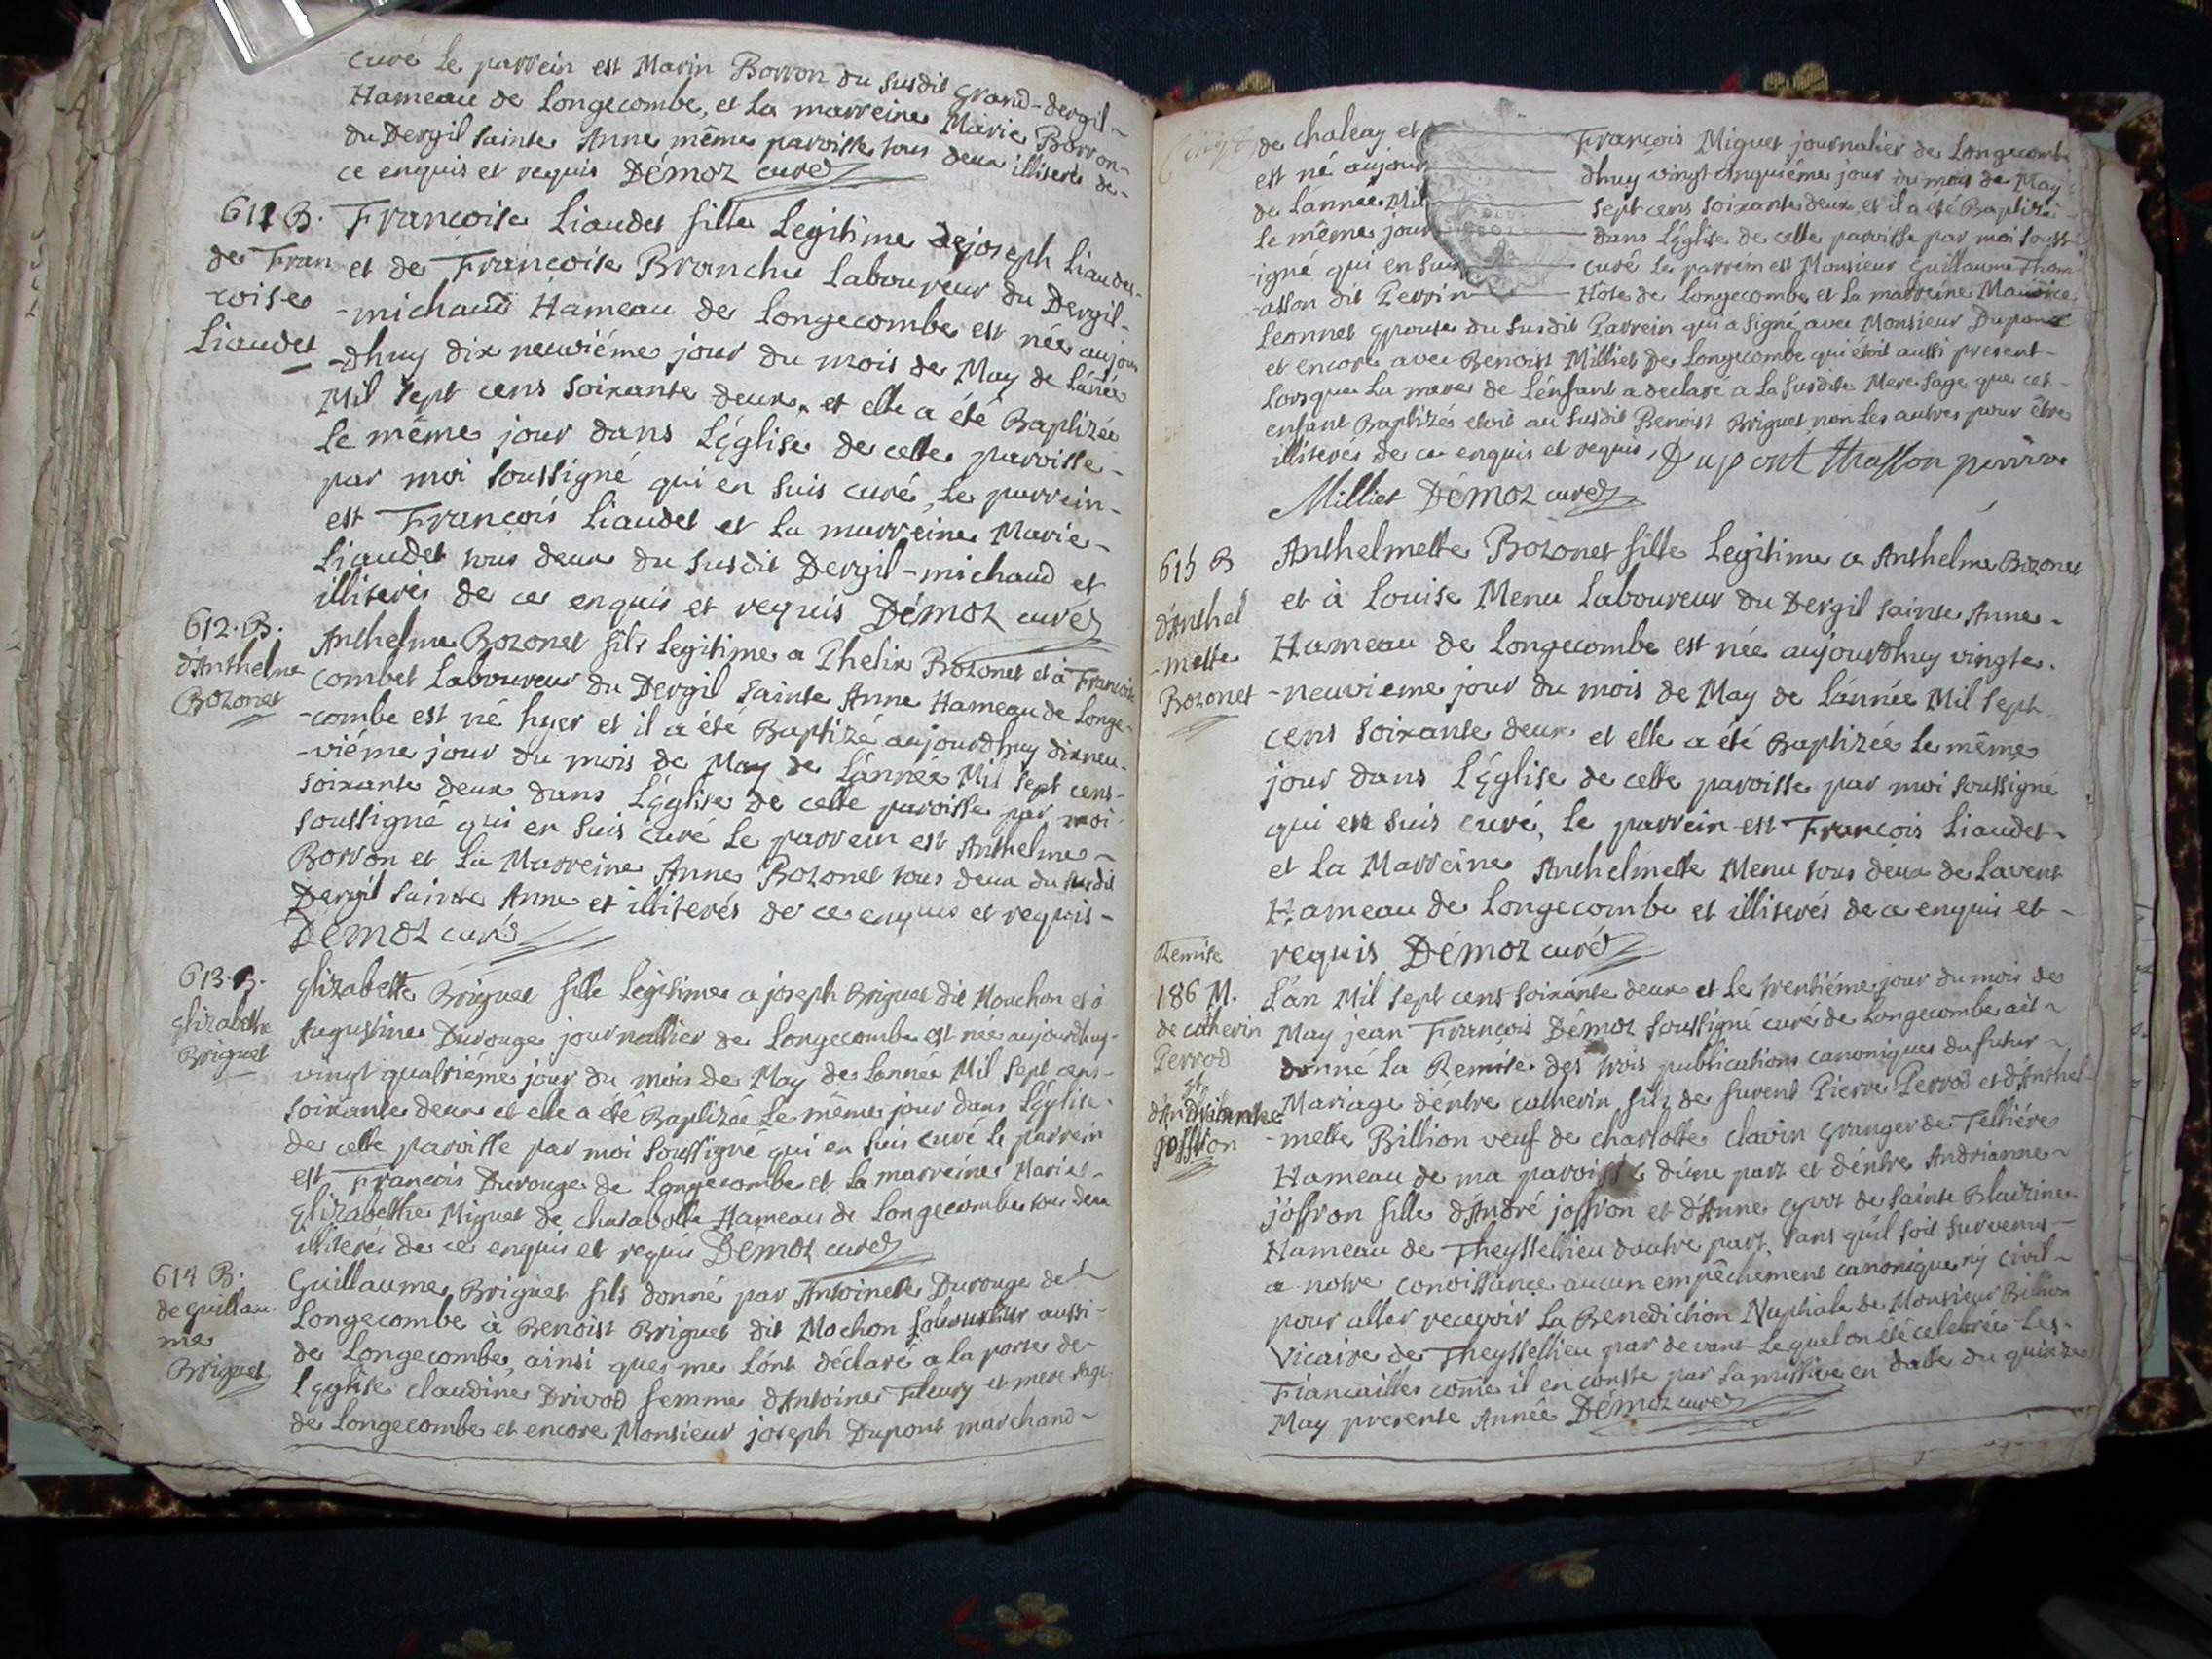 curé Le parrein est Marin Borron du susdit Grand-dergil-
Hameau de Longecombe, et La marreine Marie Borron-
du Dergil sainte Anne même paroisse tous deux illiterés de-
ce enquis et requis Démoz curé
611 B. Francoise Liaudet fille Legitime de joseph Liaudet-
de Fran et de Francoise Branche Laboureur du Dergil-
coise -michaud Hameau de Longecombe est née aujour
Liaudet -dhuy dix neuviéme jour du mois de May de Lánneé
Mil sept cens soixante deux, et elle a été Baptizée
Le même jour dans L'Eglise de cette paroisse-
par moi soussigné qui en suis curé, Le parrein-
est Francois Liaudet et La marreine Marie-
Liaudet tous deux du susdit Dergil-michaud et
illiterés de ce enquis et requis Démoz curé
612. B. Anthelme Bozonet fils Legitime a Phelix Bozonet et à Francoise
d'Anthelme combet Laboureur du Dergil sainte Anne Hameau de Longe-
Bozonet -combe est né hyer et il a été Baptizé aujourdhuy dixneu-
-viéme jour du mois de May de Lánnée Mil sept cens-
soixante deux dans L'Eglise de cette paroisse par moi-
soussigné qui en suis curé Le parrein est Anthelme-
Borron et La Marreine Anne Bozonet tous deux du susdit
Dergil sainte Anne et illiterés de ce enquis et requis-
Démoz curé
613. B. Elizabette Briguet fille Légitime a joseph Briguet dit Mouchon et à
Elizabethe Augustine Durouge journallier de Longecombe est née aujourdhuy-
Briguet vingt quatriéme jour du mois de May de Lannée Mil sept cens-
soixante deux et elle a été Baptizée Le même jour dans L'Eglise-
de cette paroisse par moi soussigné qui en suis curé Le parrein
est Francois Durouge de Longecombe et La marreine Marie-
Elizabethe Miguet de Hameau de Longecombe tous deux
illiterés de ce enquis et requis Démoz curé
614 B. Guillaume Briguet fils donné par Antoinette Durouge de
de Guillau- Longecombe à Benoist Briguet dit Mochon Laboureur aussi-
me de Longecombe, ainsi que me Lónt déclaré a la porte de-
Briguet L'Eglise claudine Drivod femme d'Antoine Fleury et mere sage
de Longecombe et encore Monsieur joseph Dupont marchand-
de chaleay et François Miguet journalier de Longecombe
est né aujour dhuy vingt cinquiéme jour du mois de May
de Lánnée Mil sept cens soixante deux, et il a été Baptizé
Le même jour dans L'Eglise de cette paroisse par moi souss
igné qui en suis curé Le parrein est Monsieur Guillaume Thom
asson dit Perrin Hôte de Longecombe et La marreine Maurice
Leonnet Epouse du susdit Parrein qui a signé avec Monsieur Dupont
et encore avec Benoist Milliet de Longecombe qui étoit aussi present-
Lors que La mere de L'enfant a declaré a La susdite Mere sage que cet-
enfant Baptizé etoit au susdit Benoist Briguet non Les autres pour être
illiterés de ce enquis et requis, Dupont thasson perrin
Milliet Démoz curé
615 B Anthelmette Bozonet fille Legitime a Anthelme Bozonet
d'Anthel et à Louise Menu Laboureur du Dergil sainte Anne-
-mette Hameau de Longecombe est née aujourdhuy vingte-
Bozonet -neuvieme jour du mois de May de Lánnée Mil sept
cens soixante deux et elle a été Baptizée Le même
jour dans L'Eglise de cette paroisse par moi soussigné
qui en suis curé, Le parrein est Francois Liaudet-
et La Marreine Anthelmette Menu tous deux de Lavent
Hameau de Longecombe et illiterés de ce enquis et-
Remise requis Démoz curé
186 M. Lán Mil sept cens soixante deux et Le trentiéme jour du mois de
de catherin May jean François Démoz soussigné curé de Longecombe ait-
Perrod donné La Remise des trois publications canoniques du futur-
et Mariage d'entre catherin fils de furent Pierre Perrod et d'Anthel-
d'Andrianne -mette Billion veuf de charlotte clavin Granger de Tellières
joffron Hameau de ma paroisse d'une part et d'entre Andrianne-
joffron fille d'André joffron et d'Anne Cyvot de sainte Blaizine
Hameau de Theyssellieu dautre part, sans qu'il soit survenu-
a notre conoissance aucun empêchement canonique ny civil-
pour aller recevoir La Benediction Nuptiale de Monsieur Billion
Vicaire de Theyssellieu par devant Lequel on été celebrée Les-
Fiancailles come il en conste par sa missive en datte du quinze
May presente Année Démoz curé